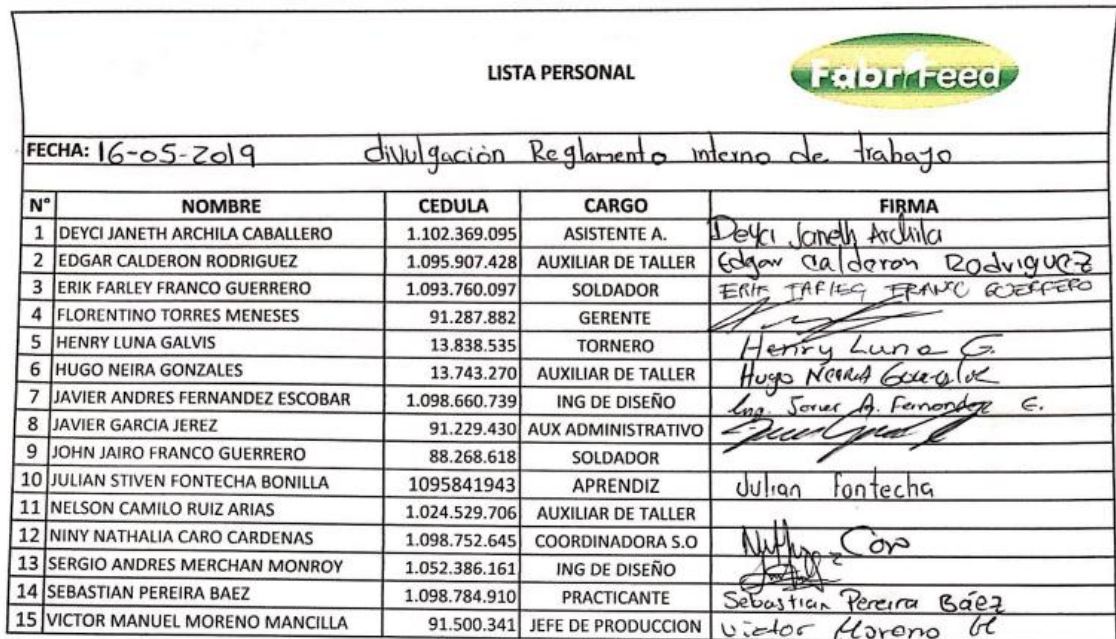 LISTA PERSONAL
FabriFeed
FECHA: 16-05-2019 divulgación Reglamento interno de trabajo
N° NOMBRE CEDULA CARGO FIRMA
1 DEYCI JANETH ARCHILA CABALLERO 1.102.369.095 ASISTENTE A. Deyci Janeth Archila
2 EDGAR CALDERON RODRIGUEZ 1.095.907.428 AUXILIAR DE TALLER Edgar Calderon Rodriguez
3 ERIK FARLEY FRANCO GUERRERO 1.093.760.097 SOLDADOR ERIK FRANCO GUERRERO
4 FLORENTINO TORRES MENESES 91.287.882 GERENTE
5 HENRY LUNA GALVIS 13.838.535 TORNERO Henry Luna G.
6 HUGO NEIRA GONZALES 13.743.270 AUXILIAR DE TALLER Hugo Neira
7 JAVIER ANDRES FERNANDEZ ESCOBAR 1.098.660.739 ING DE DISEÑO Ing. Javier A. Fernandez E.
8 JAVIER GARCIA JEREZ 91.229.430 AUX ADMINISTRATIVO
9 JOHN JAIRO FRANCO GUERRERO 88.268.618 SOLDADOR
10 JULIAN STIVEN FONTECHA BONILLA 1095841943 APRENDIZ Julian Fontecha
11 NELSON CAMILO RUIZ ARIAS 1.024.529.706 AUXILIAR DE TALLER
12 NINY NATHALIA CARO CARDENAS 1.098.752.645 COORDINADORA S.O
13 SERGIO ANDRES MERCHAN MONROY 1.052.386.161 ING DE DISEÑO
14 SEBASTIAN PEREIRA BAEZ 1.098.784.910 PRACTICANTE Sebastian Pereira Báez
15 VICTOR MANUEL MORENO MANCILLA 91.500.341 JEFE DE PRODUCCION Victor Moreno